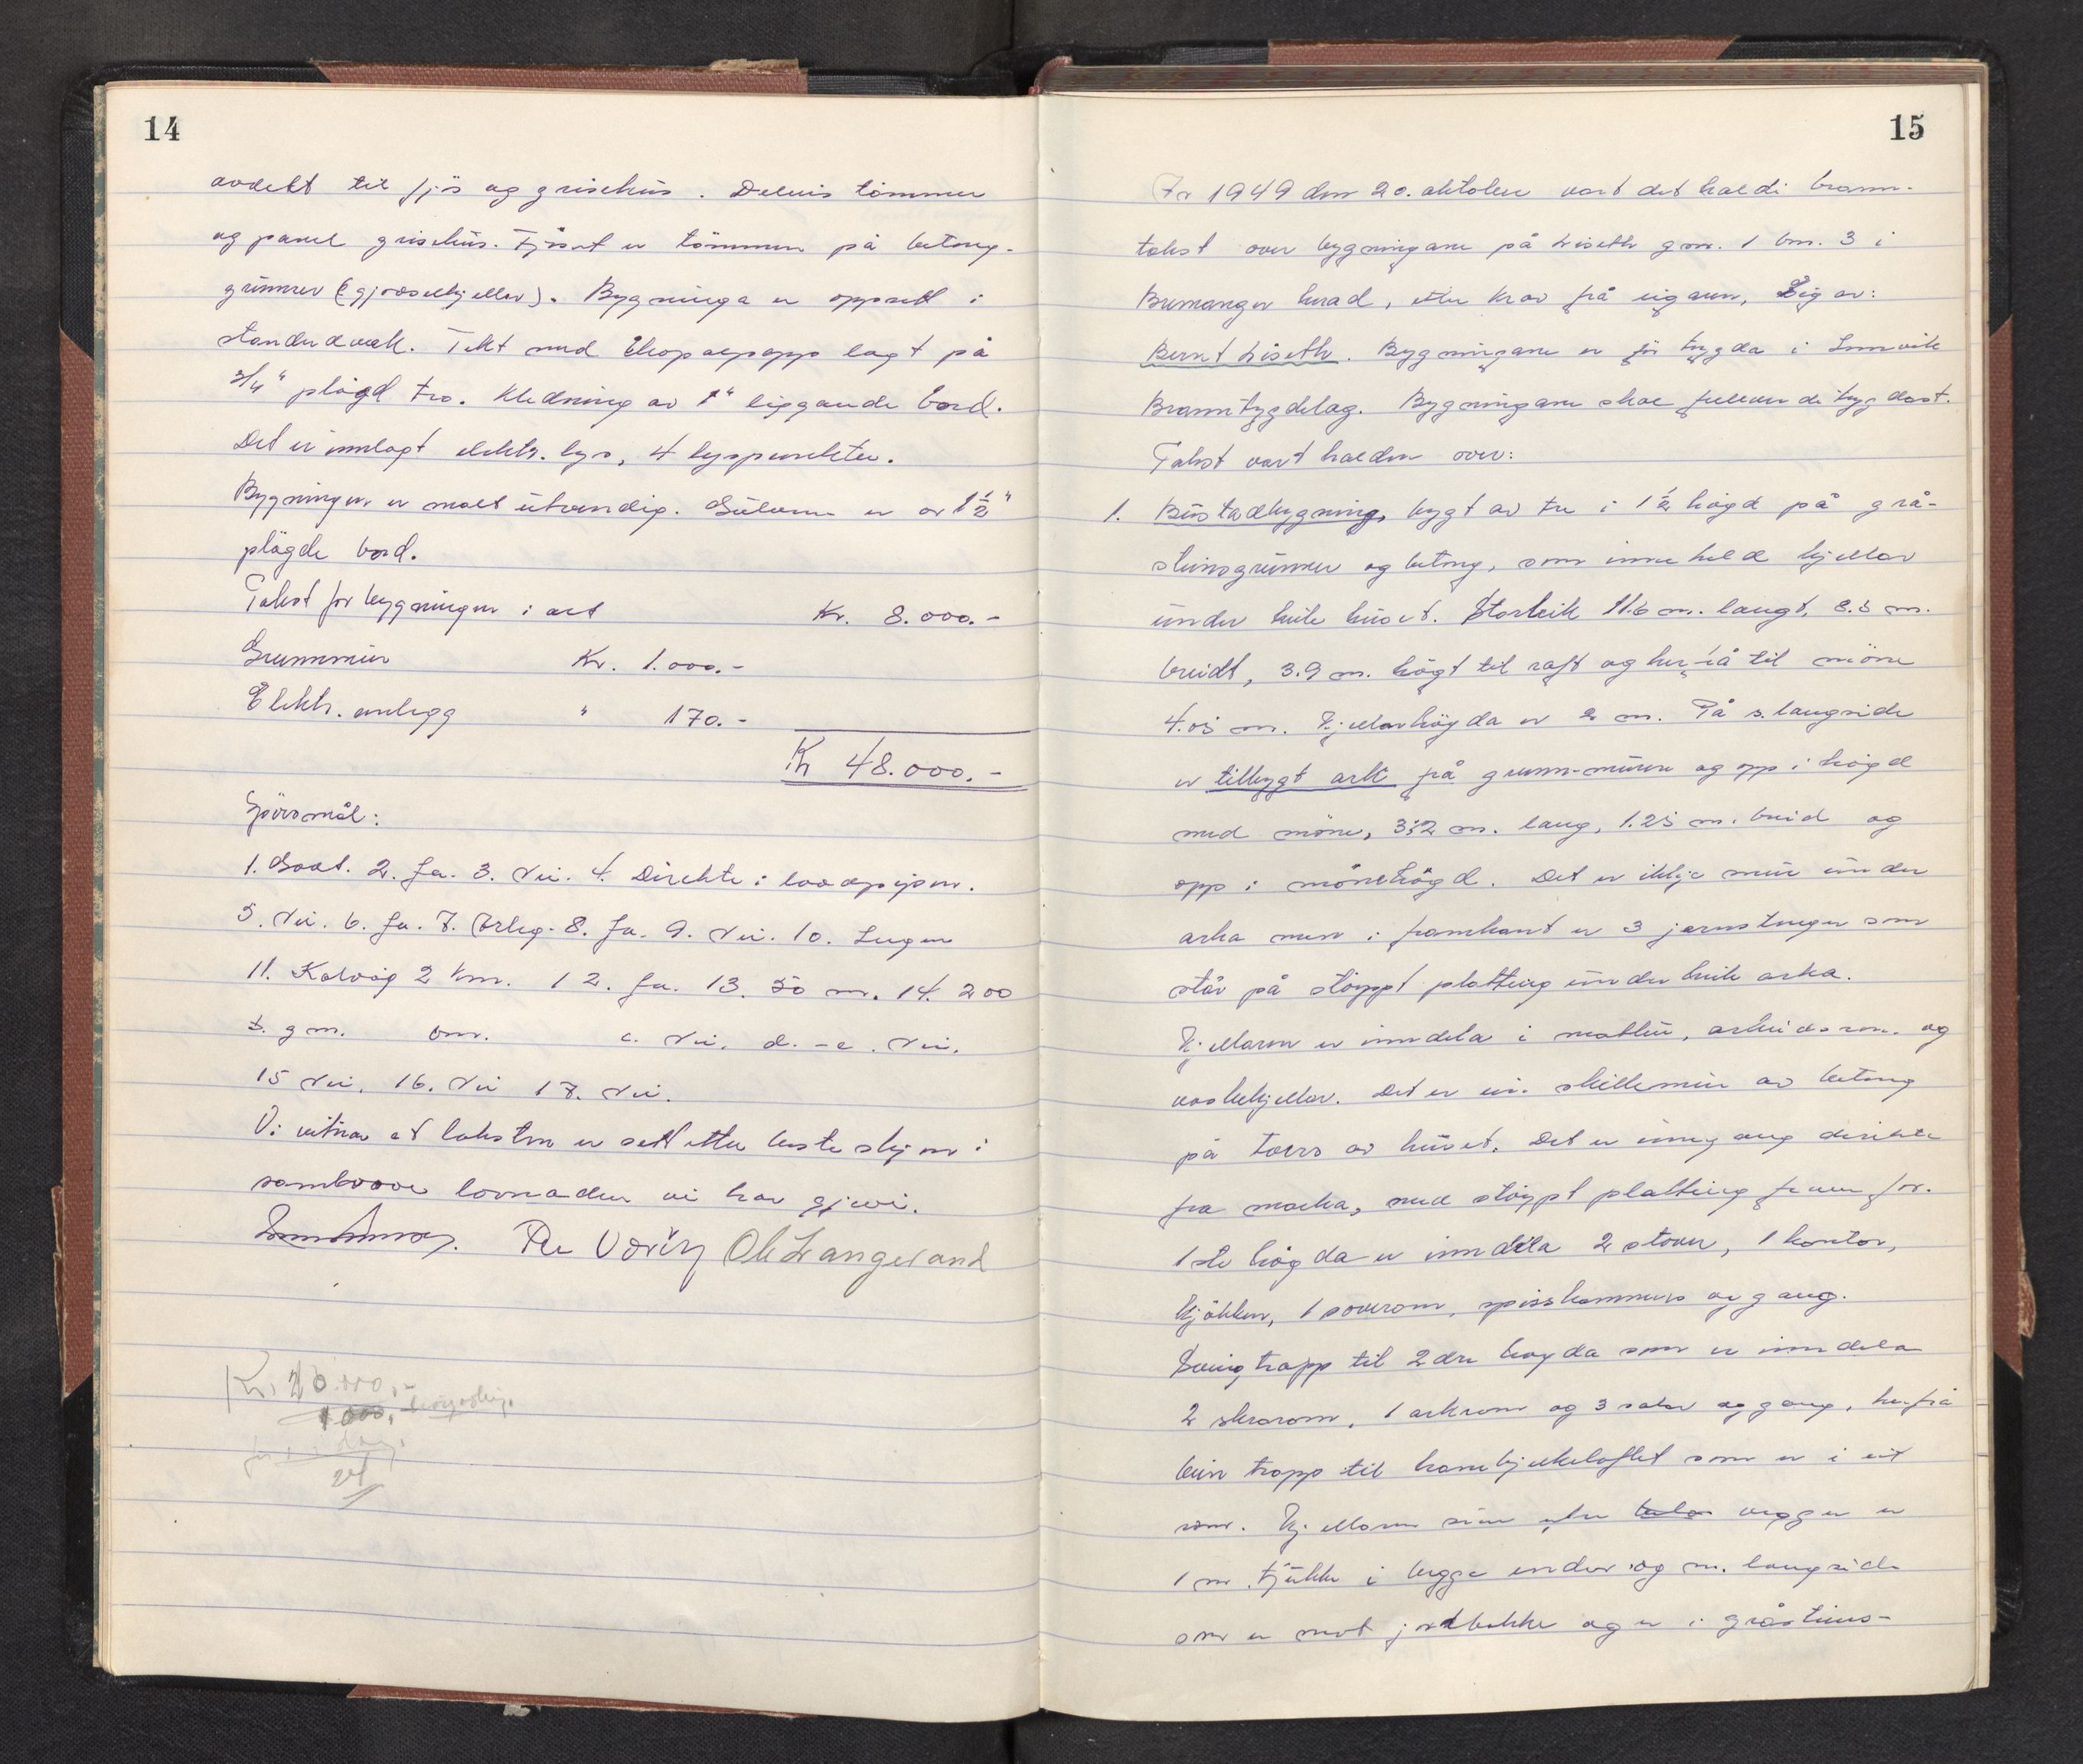 14
avdekt til fjös og grisehus. Delvis tömmer
og panel grisehus. Fjöset er tömmer på betong-
grunnur (gjödselkjellar). Bygninga er oppsett i
standerverk. Tekt med takpapp lagt på
3/4" plögd tro. Kledning av 1" liggande bord.
Det er innlagt elektr. lys, 4 lyspunkter.
Bygningen er malt utvendig. Gulvene er av 1 1/2"
plögde bord.
Takst for bygningen i alt Kr. 8.000.-
Grunnmur Kr. 1.000.-
Elektr. anlegg " 170.-
Kr 48.000.-
Spörsmål:
1. Godt. 2. Ja. 3. Nei. 4. Direkte i
5. Nei. 6. Ja. 7. Årleg. 8. Ja. 9. Nei. 10. Ingen
11. Kalvåg 2 km. 12. Ja. 13. 50 m. 14. 200
b. gm. bm. c. Nei. d. - e. Nei.
15 Nei. 16. Nei 17. Nei.
Vi vitnar at taksten er sett etter beste skjön i
samsvar lovnaden vi har gjevi.
Ole Langesand
Kr. 20.000,-
1000,-
24
15
År 1949 den 20. oktober vart det haldi brann-
takst over bygningane på Liseth gnr. 1 bnr. 3 i
Bremanger herad, etter krav frå eigaren, Eigar:
Bernt Liseth. Bygningane er för trygda i Innvik
Branntrygdelag. Bygningane skal framleis de trygdast.
Takst vart halden over:
1. Bustadbygning, bygt av tre i 1 1/2 högd på grå-
steinsgrunnur og betong, som inneheld kjellar
under heile huset. Storleik 11.6 m. langt, 8.5 m.
breidt, 3.9 m. högt til raft og herifrå til möne
4.05 m. Kjellarhögda er 2 m. På s. langside
er tilbygt ark frå grunn-muren og opp i högd
med möne, 3.2 m. lang, 1.25 m. breid og
opp i mönehögd. Det er ikkje mur under
arka men i framkant er 3 jernstenger som
står på stöypt platting under heile arka.
Kjellaren er inndela i matbu, arbeidsrom og
vaskekjellar. Det er ein skillemur av betong
på tvers av huset. Det er inngang direkte
fra marka, med stöypt platting framfor.
1ste högda er inndela 2 stover, 1 kontor,
kjökken, 1 soverom, spisskammers og gang.
Svingtrapp til 2dre högda som er inndela
2 skrarom, 1 arkrom og 3 salar og gang, herfrå
bein trapp til hanebjelkeloftet som er i eit
rom. Kjellaren sine ytre vegger er
1 m. tjukke i begge ender og n. langside
som er mot jordbakke og er i gråsteins-